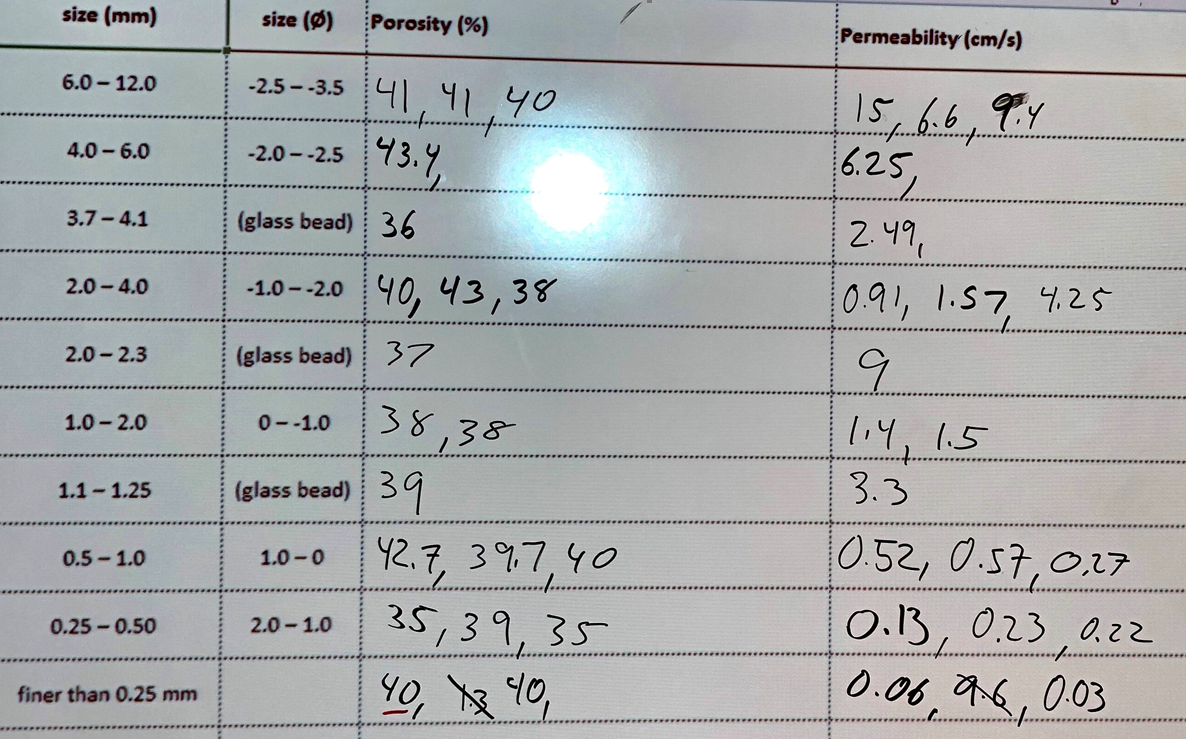 size (mm) size (Ø) Porosity (%) Permeability (cm/s)
6.0 – 12.0 -2.5 – -3.5 41, 41, 40 15, 6.6, 9.4
4.0 – 6.0 -2.0 – -2.5 43.4, 6.25,
3.7 – 4.1 (glass bead) 36 2.49,
2.0 – 4.0 -1.0 – -2.0 40, 43, 38 0.91, 1.57, 4.25
2.0 – 2.3 (glass bead) 37 9
1.0 – 2.0 0 – -1.0 38, 38 1.4, 1.5
1.1 – 1.25 (glass bead) 39 3.3
0.5 – 1.0 1.0 – 0 42.7, 39.7, 40 0.52, 0.57, 0.27
0.25 – 0.50 2.0 – 1.0 35, 39, 35 0.13, 0.23, 0.22
finer than 0.25 mm 40, 40, 0.06, 0.03